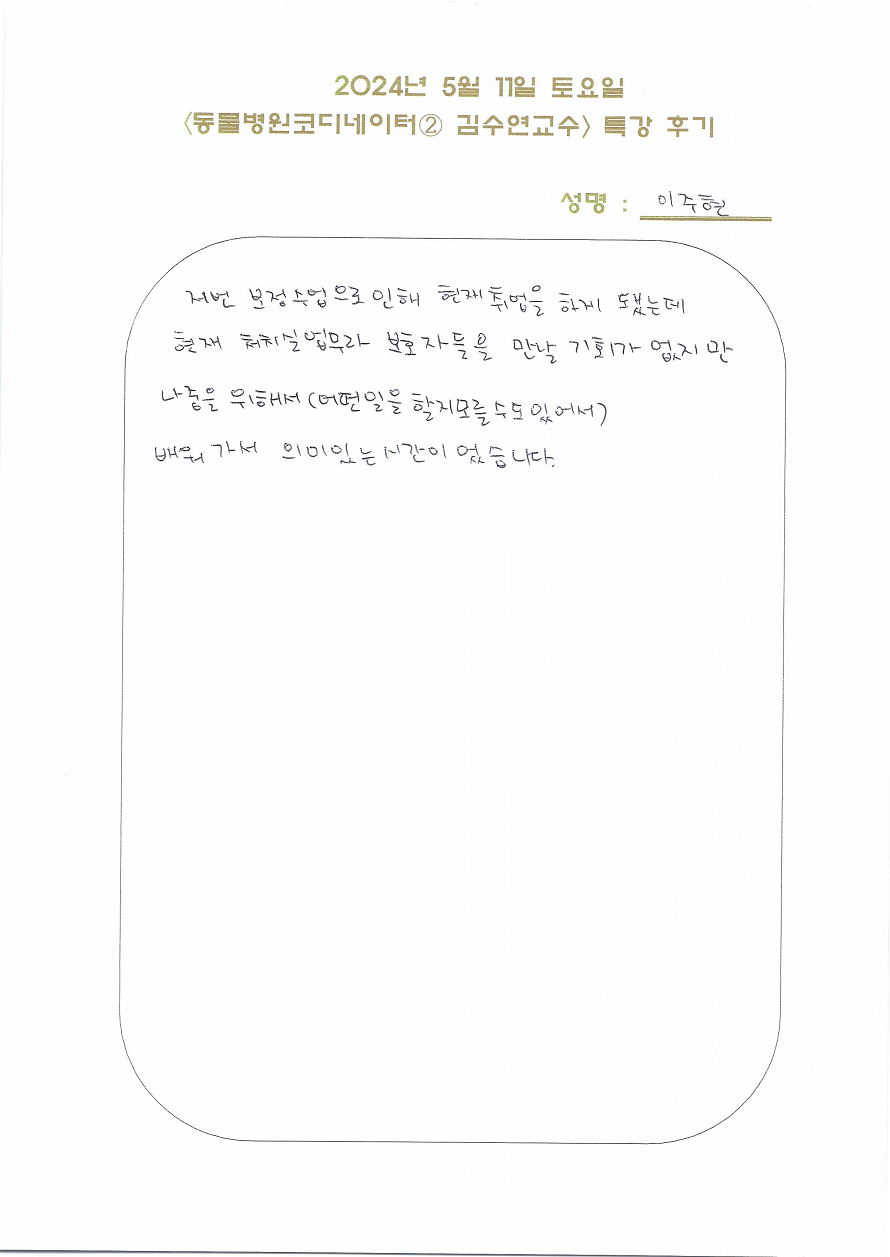 2024년 5월 11일 토요일
〈동물병원코디네이터② 김수연교수〉 특강 후기
성명 : 이주현
저번 보정수업으로 인해 현재취업을 하게 됐는데
현재 처치실업무라 보호자들을 만날 기회가 없지만
나중을 위해서 (어떤일을 할지모를수도있어서)
배워가서 의미있는시간이었습니다.